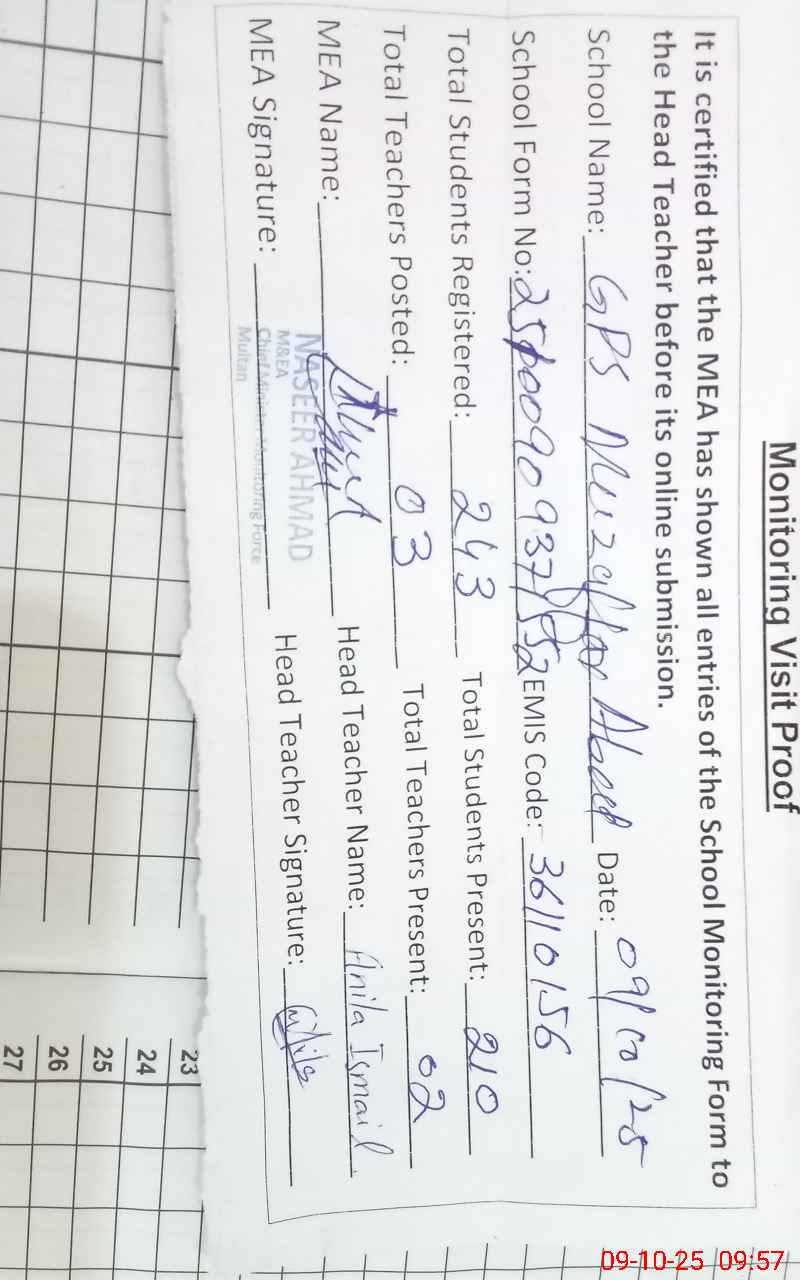 Monitoring Visit Proof
It is certified that the MEA has shown all entries of the School Monitoring Form to
the Head Teacher before its online submission.
School Name: GPS Muzaffar Abad Date: 09/10/25
School Form No: EMIS Code: 36110156
Total Students Registered: 243 Total Students Present: 210
Total Teachers Posted: 03 Total Teachers Present: 02
MEA Name: Head Teacher Name: Anila Ismail
NASEER AHMAD
MEA Signature: Head Teacher Signature: Anila
M&EA
Chief Minister Monitoring Force
Multan
23
24
25
26
27
09-10-25 09:57